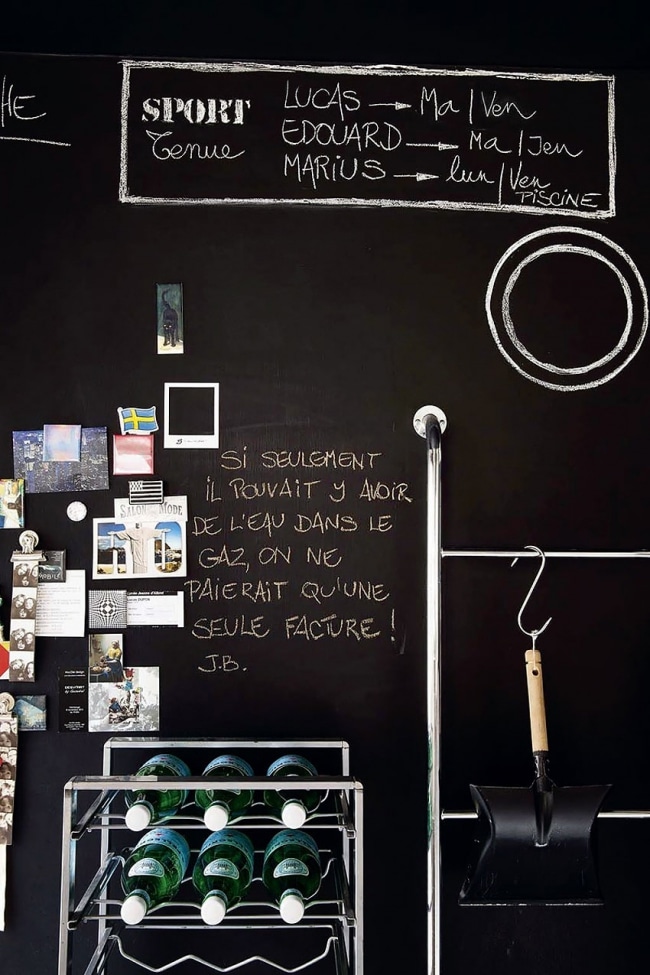 HE
SPORT
Tenue
LUCAS → Ma | Ven
EDOUARD → Ma | Jeu
MARIUS → lun | Ven
PISCINE
SALON MODE
SI SEULEMENT
IL POUVAIT Y AVOIR
DE L'EAU DANS LE
GAZ, ON NE
PAIERAIT QU'UNE
SEULE FACTURE !
J.B.